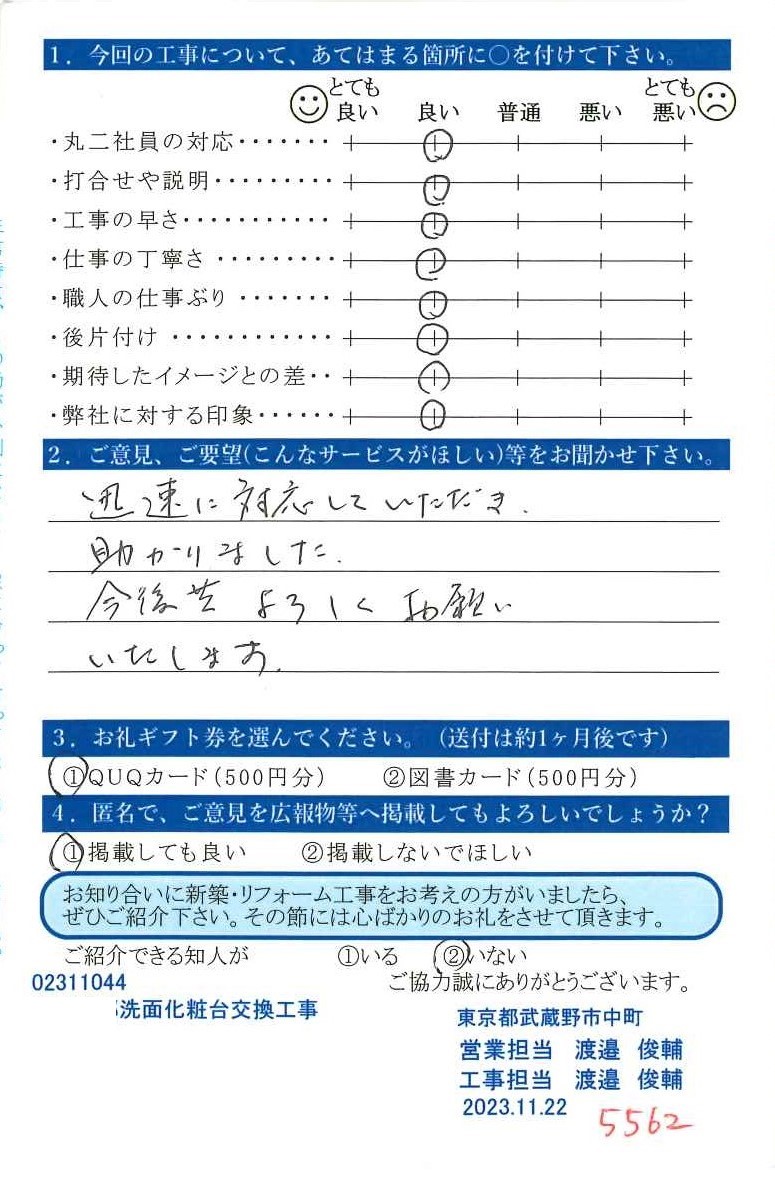 1．今回の工事について、あてはまる箇所に○を付けて下さい。
とても良い 良い 普通 悪い とても悪い
・丸二社員の対応・・・・・・・
・打合せや説明・・・・・・・・・
・工事の早さ・・・・・・・・・・・
・仕事の丁寧さ・・・・・・・・・
・職人の仕事ぶり・・・・・・・
・後片付け・・・・・・・・・・・・
・期待したイメージとの差・・
・弊社に対する印象・・・・・・
2．ご意見、ご要望(こんなサービスがほしい)等をお聞かせ下さい。
迅速に対応していただき.
助かりました.
今後共 よろしくお願い
いたします.
3．お礼ギフト券を選んでください。（送付は約1ヶ月後です）
①QUQカード（500円分） ②図書カード（500円分）
4．匿名で、ご意見を広報物等へ掲載してもよろしいでしょうか？
①掲載しても良い ②掲載しないでほしい
お知り合いに新築・リフォーム工事をお考えの方がいましたら、
ぜひご紹介下さい。その節には心ばかりのお礼をさせて頂きます。
ご紹介できる知人が ①いる ②いない
02311044
ご協力誠にありがとうございます。
洗面化粧台交換工事
東京都武蔵野市中町
営業担当 渡邉 俊輔
工事担当 渡邉 俊輔
2023.11.22
5562